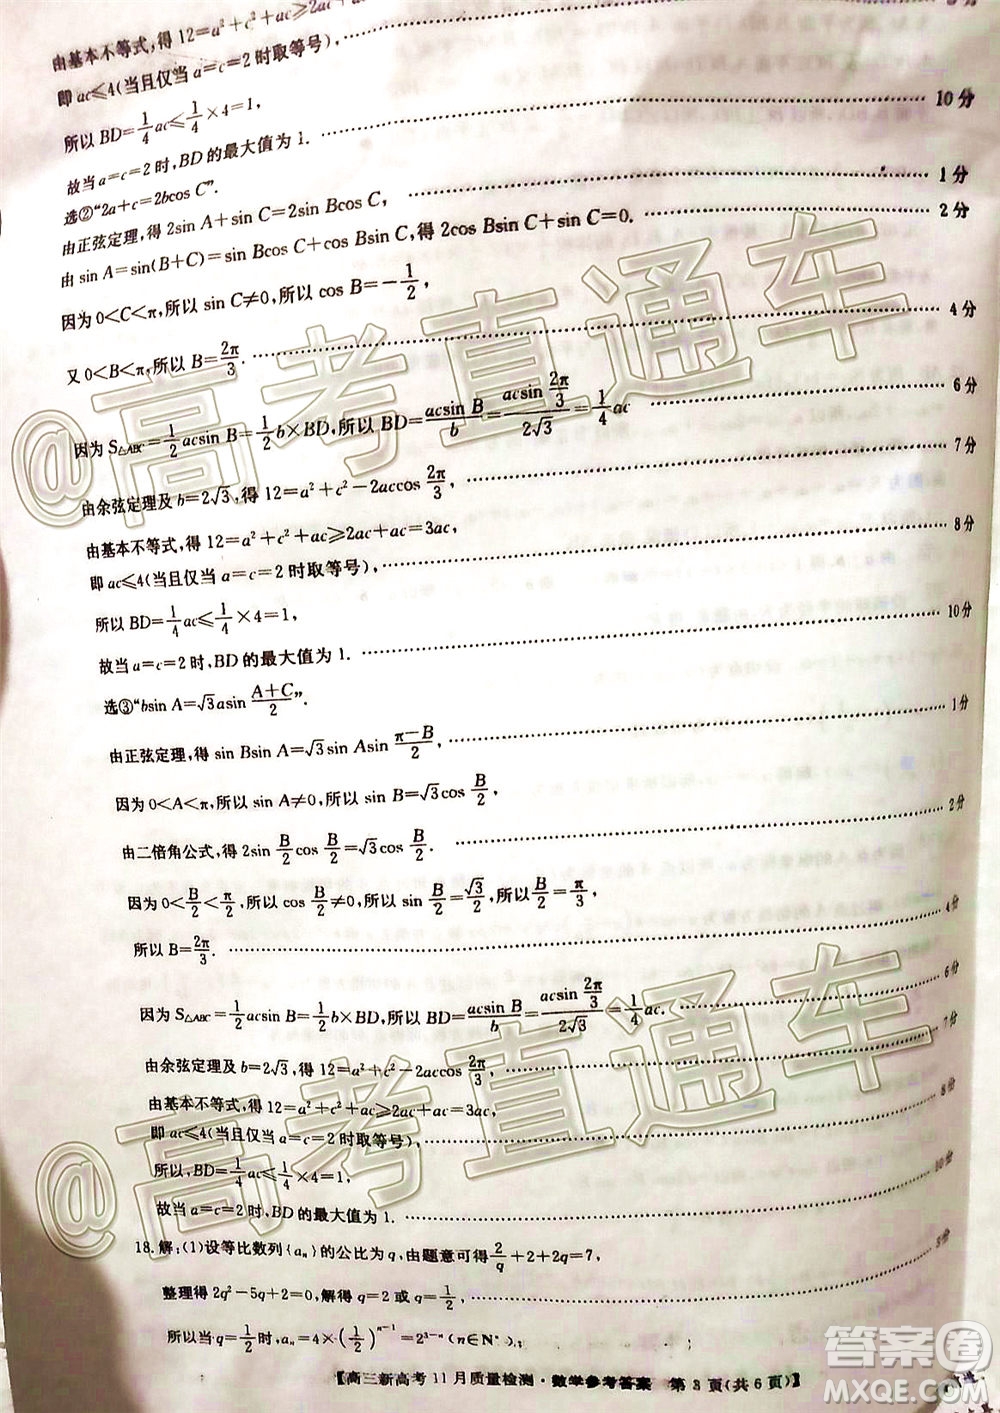 由基本不等式,得 12=a²+c²+ac≥2ac+ac
即 ac≤4(当且仅当 a=c=2 时取等号),
所以 BD=1/4 ac≤1/4×4=1,
故当 a=c=2 时,BD 的最大值为 1. 10 分
选②“2a+c=2bcos C”.
由正弦定理,得 2sin A+sin C=2sin Bcos C, 1 分
由 sin A=sin(B+C)=sin Bcos C+cos Bsin C,得 2cos Bsin C+sin C=0. 2 分
因为 0<C<π,所以 sin C≠0,所以 cos B=-1/2,
又 0<B<π,所以 B=2π/3. 4 分
因为 S△ABC=1/2 acsin B=1/2 b×BD,所以 BD=acsin B/b=acsin 2π/3/2√3=1/4 ac 6 分
由余弦定理及 b=2√3,得 12=a²+c²-2accos 2π/3, 7 分
由基本不等式,得 12=a²+c²+ac≥2ac+ac=3ac,
即 ac≤4(当且仅当 a=c=2 时取等号), 8 分
所以 BD=1/4 ac≤1/4×4=1,
故当 a=c=2 时,BD 的最大值为 1. 10 分
选③“bsin A=√3asin (A+C)/2”.
由正弦定理,得 sin Bsin A=√3sin Asin (π-B)/2, 1 分
因为 0<A<π,所以 sin A≠0,所以 sin B=√3cos B/2,
由二倍角公式,得 2sin B/2 cos B/2=√3cos B/2. 2 分
因为 0<B/2<π/2,所以 cos B/2≠0,所以 sin B/2=√3/2,所以 B/2=π/3,
所以 B=2π/3. 4 分
因为 S△ABC=1/2 acsin B=1/2 b×BD,所以 BD=acsin B/b=acsin 2π/3/2√3=1/4 ac. 6 分
由余弦定理及 b=2√3,得 12=a²+c²-2accos 2π/3, 7 分
由基本不等式,得 12=a²+c²+ac≥2ac+ac=3ac,
即 ac≤4(当且仅当 a=c=2 时取等号), 8 分
所以,BD=1/4 ac≤1/4×4=1,
故当 a=c=2 时,BD 的最大值为 1. 10 分
18.解:(1)设等比数列{aₙ}的公比为 q,由题意可得 2/q+2+2q=7,
整理得 2q²-5q+2=0,解得 q=2 或 q=1/2,
所以当 q=1/2 时,aₙ=4×(1/2)ⁿ⁻¹=2³⁻ⁿ(n∈N*);
【高三新高考 11 月质量检测·数学参考答案 第 3 页(共 6 页)】
@高考直通车
@高考直通车
答案圈
MXQE.COM